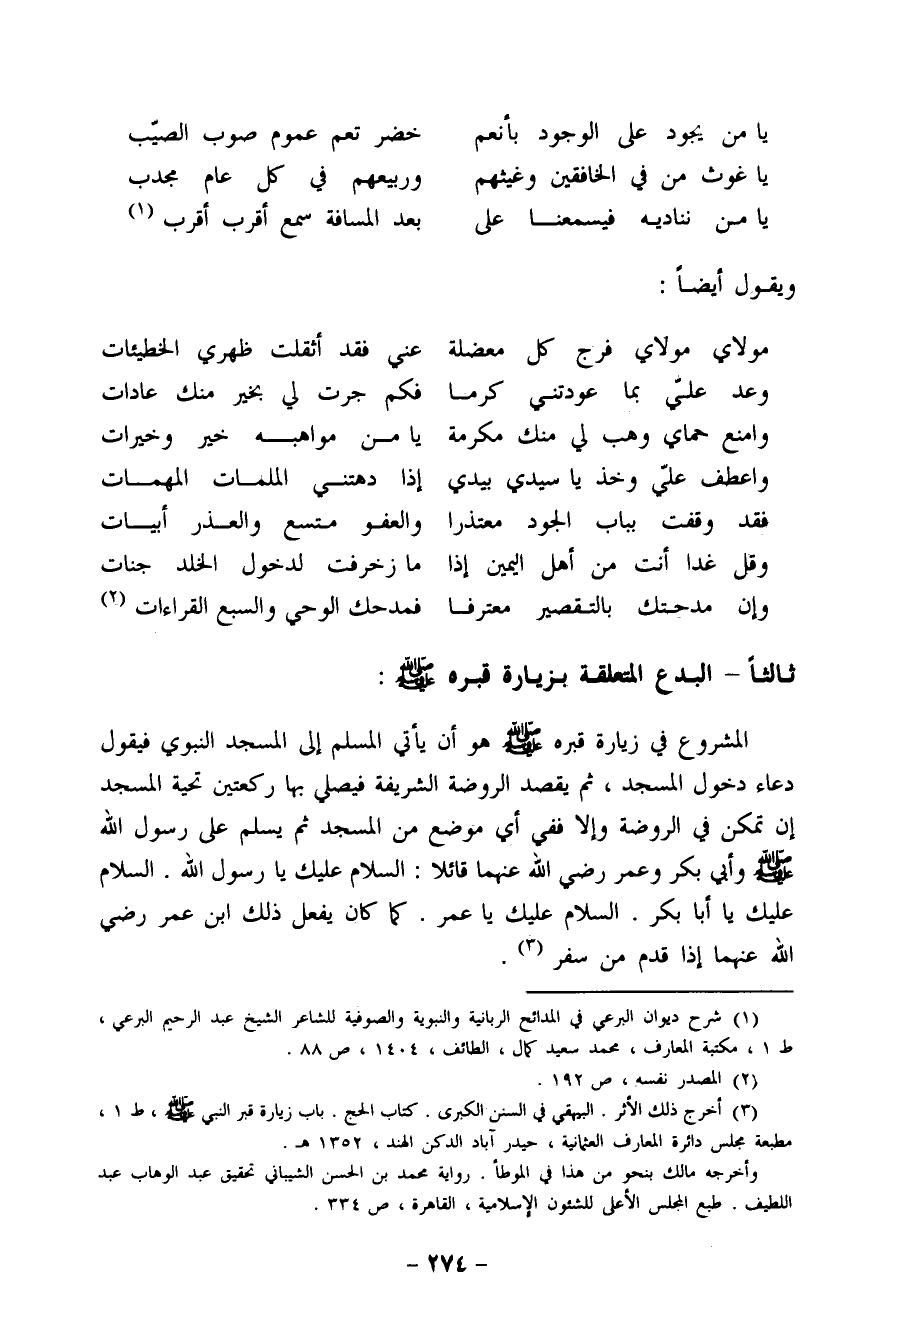 يا من يجود على الوجود بأنعم خضر تعم عموم صوب الصيّب
يا غوث من في الخافقين وغيثهم وربيعهم في كل عام مجدب
يا مـن نناديـه فيسمعنــا على بعد المسافة سمع أقرب أقرب (١)
ويقـول أيضـاً :
مولاي مولاي فرج كل معضلة عني فقد أثقلت ظهري الخطيئات
وعد علـيّ بما عودتنـي كرمـا فكم جرت لي بخير منك عادات
وامنع حماي وهب لي منك مكرمة يا مـن مواهبـــه خير وخيرات
واعطف عليّ وخذ يا سيدي بيدي إذا دهتنـي الملمـات المهمـات
فقد وقفت بباب الجود معتذرا والعفـو متسع والعـذر أبيـات
وقل غدا أنت من أهل اليمين إذا ما زخرفت لدخول الخلد جنات
وإن مدحتـك بالتـقصير معترفـا فمدحك الوحي والسبع القراءات (٢)
ثـالثـاً – البـدع المتعلقـة بـزيـارة قبـره ﷺ :
المشروع في زيارة قبره ﷺ هو أن يأتي المسلم إلى المسجد النبوي فيقول
دعاء دخول المسجد ، ثم يقصد الروضة الشريفة فيصلي بها ركعتين تحية المسجد
إن تمكن في الروضة وإلا ففي أي موضع من المسجد ثم يسلم على رسول الله
ﷺ وأبي بكر وعمر رضي الله عنهما قائلا : السلام عليك يا رسول الله . السلام
عليك يا أبا بكر . السلام عليك يا عمر . كما كان يفعل ذلك ابن عمر رضي
الله عنهما إذا قدم من سفر (٣) .
(١) شرح ديوان البرعي في المدائح الربانية والنبوية والصوفية للشاعر الشيخ عبد الرحيم البرعي ،
ط ١ ، مكتبة المعارف ، محمد سعيد كمال ، الطائف ، ١٤٠٤ ، ص ٨٨ .
(٢) المصدر نفسه ، ص ١٩٢ .
(٣) أخرج ذلك الأثر . البيهقي في السنن الكبرى . كتاب الحج . باب زيارة قبر النبي ﷺ ، ط ١ ،
مطبعة مجلس دائرة المعارف العثمانية ، حيدر آباد الدكن الهند ، ١٣٥٢ هـ .
وأخرجه مالك بنحو من هذا في الموطأ . رواية محمد بن الحسن الشيباني تحقيق عبد الوهاب عبد
اللطيف . طبع المجلس الأعلى للشئون الإسلامية ، القاهرة ، ص ٣٣٤ .
- ٢٧٤ -